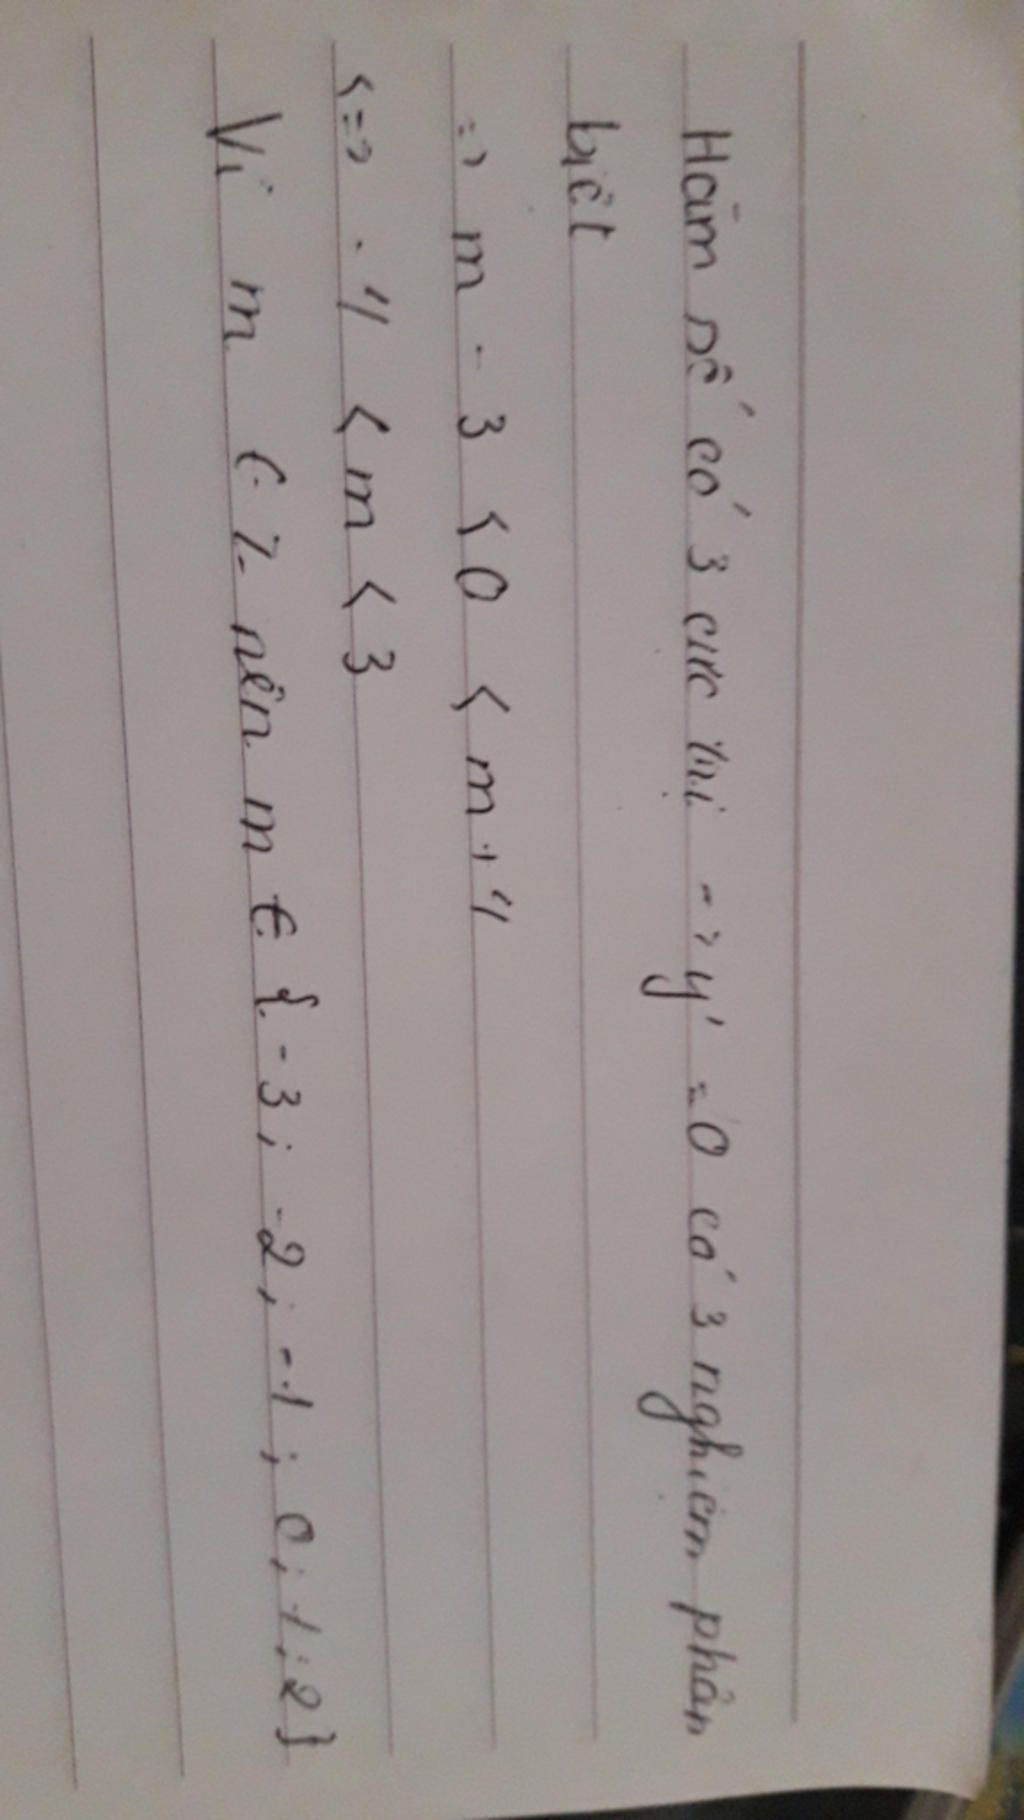 Hàm số có 3 cực trị => y' = 0 có 3 nghiệm phân
biệt
=> m - 3 < 0 < m + 4
<=> - 4 < m < 3
Vì m ∈ Z nên m ∈ { - 3 ; - 2 ; - 1 ; 0 ; 1 ; 2 }